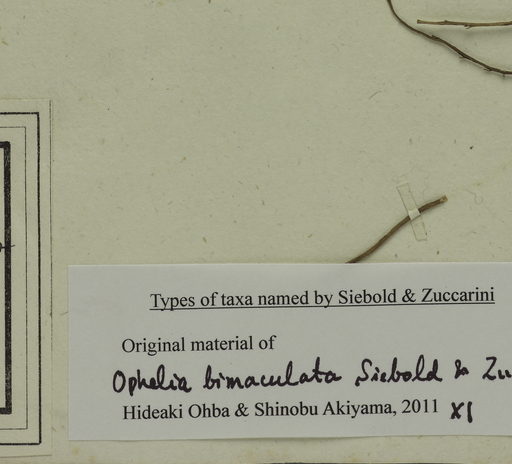 Types of taxa named by Siebold & Zuccarini
Original material of
Ophelia bimaculata Siebold & Zu
Hideaki Ohba & Shinobu Akiyama, 2011 XI